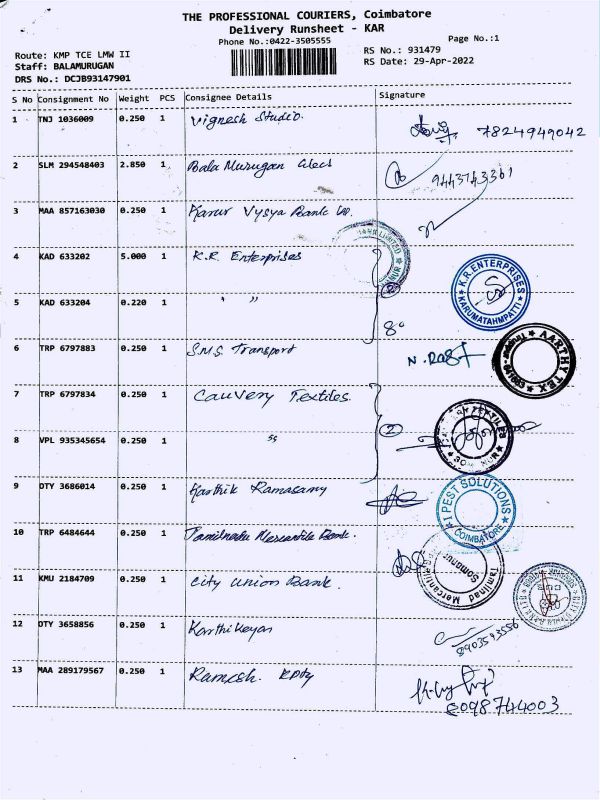 THE PROFESSIONAL COURIERS, Coimbatore
Delivery Runsheet - KAR
Phone No.:0422-3505555
Page No.:1
Route: KMP TCE LMW II
RS No.: 931479
Staff: BALAMURUGAN
RS Date: 29-Apr-2022
DRS No.: DCJB93147901
S No Consignment No Weight PCS Consignee Details Signature
1 TNJ 1036009 0.250 1 Vignesh Studio. 7824949042
2 SLM 294548403 2.850 1 Bala Murugan Elecs 9443743361
3 MAA 857163030 0.250 1 Karur Vysya Bank
4 KAD 633202 5.000 1 K.R. Enterprises
K.R.ENTERPRISES
KARUMATAHMPATTI
5 KAD 633204 0.220 1 "
2
6 TRP 6797883 0.250 1 S.M.S. Transport
AARTHY TEX
7 TRP 6797834 0.250 1 Cauvery Textiles.
2
TEXTILES
8 VPL 935345654 0.250 1 "
9 DTY 3686014 0.250 1 Karthik Ramasamy
I PEST SOLUTIONS
COIMBATORE
10 TRP 6484644 0.250 1 Tamilnadu Mercantile Bank.
Tamilnad Mercantile
Somanur
11 KMU 2184709 0.250 1 City Union Bank.
12 DTY 3658856 0.250 1 Karthikeyan
8903543556
13 MAA 289179567 0.250 1 Ramesh.
8098744003